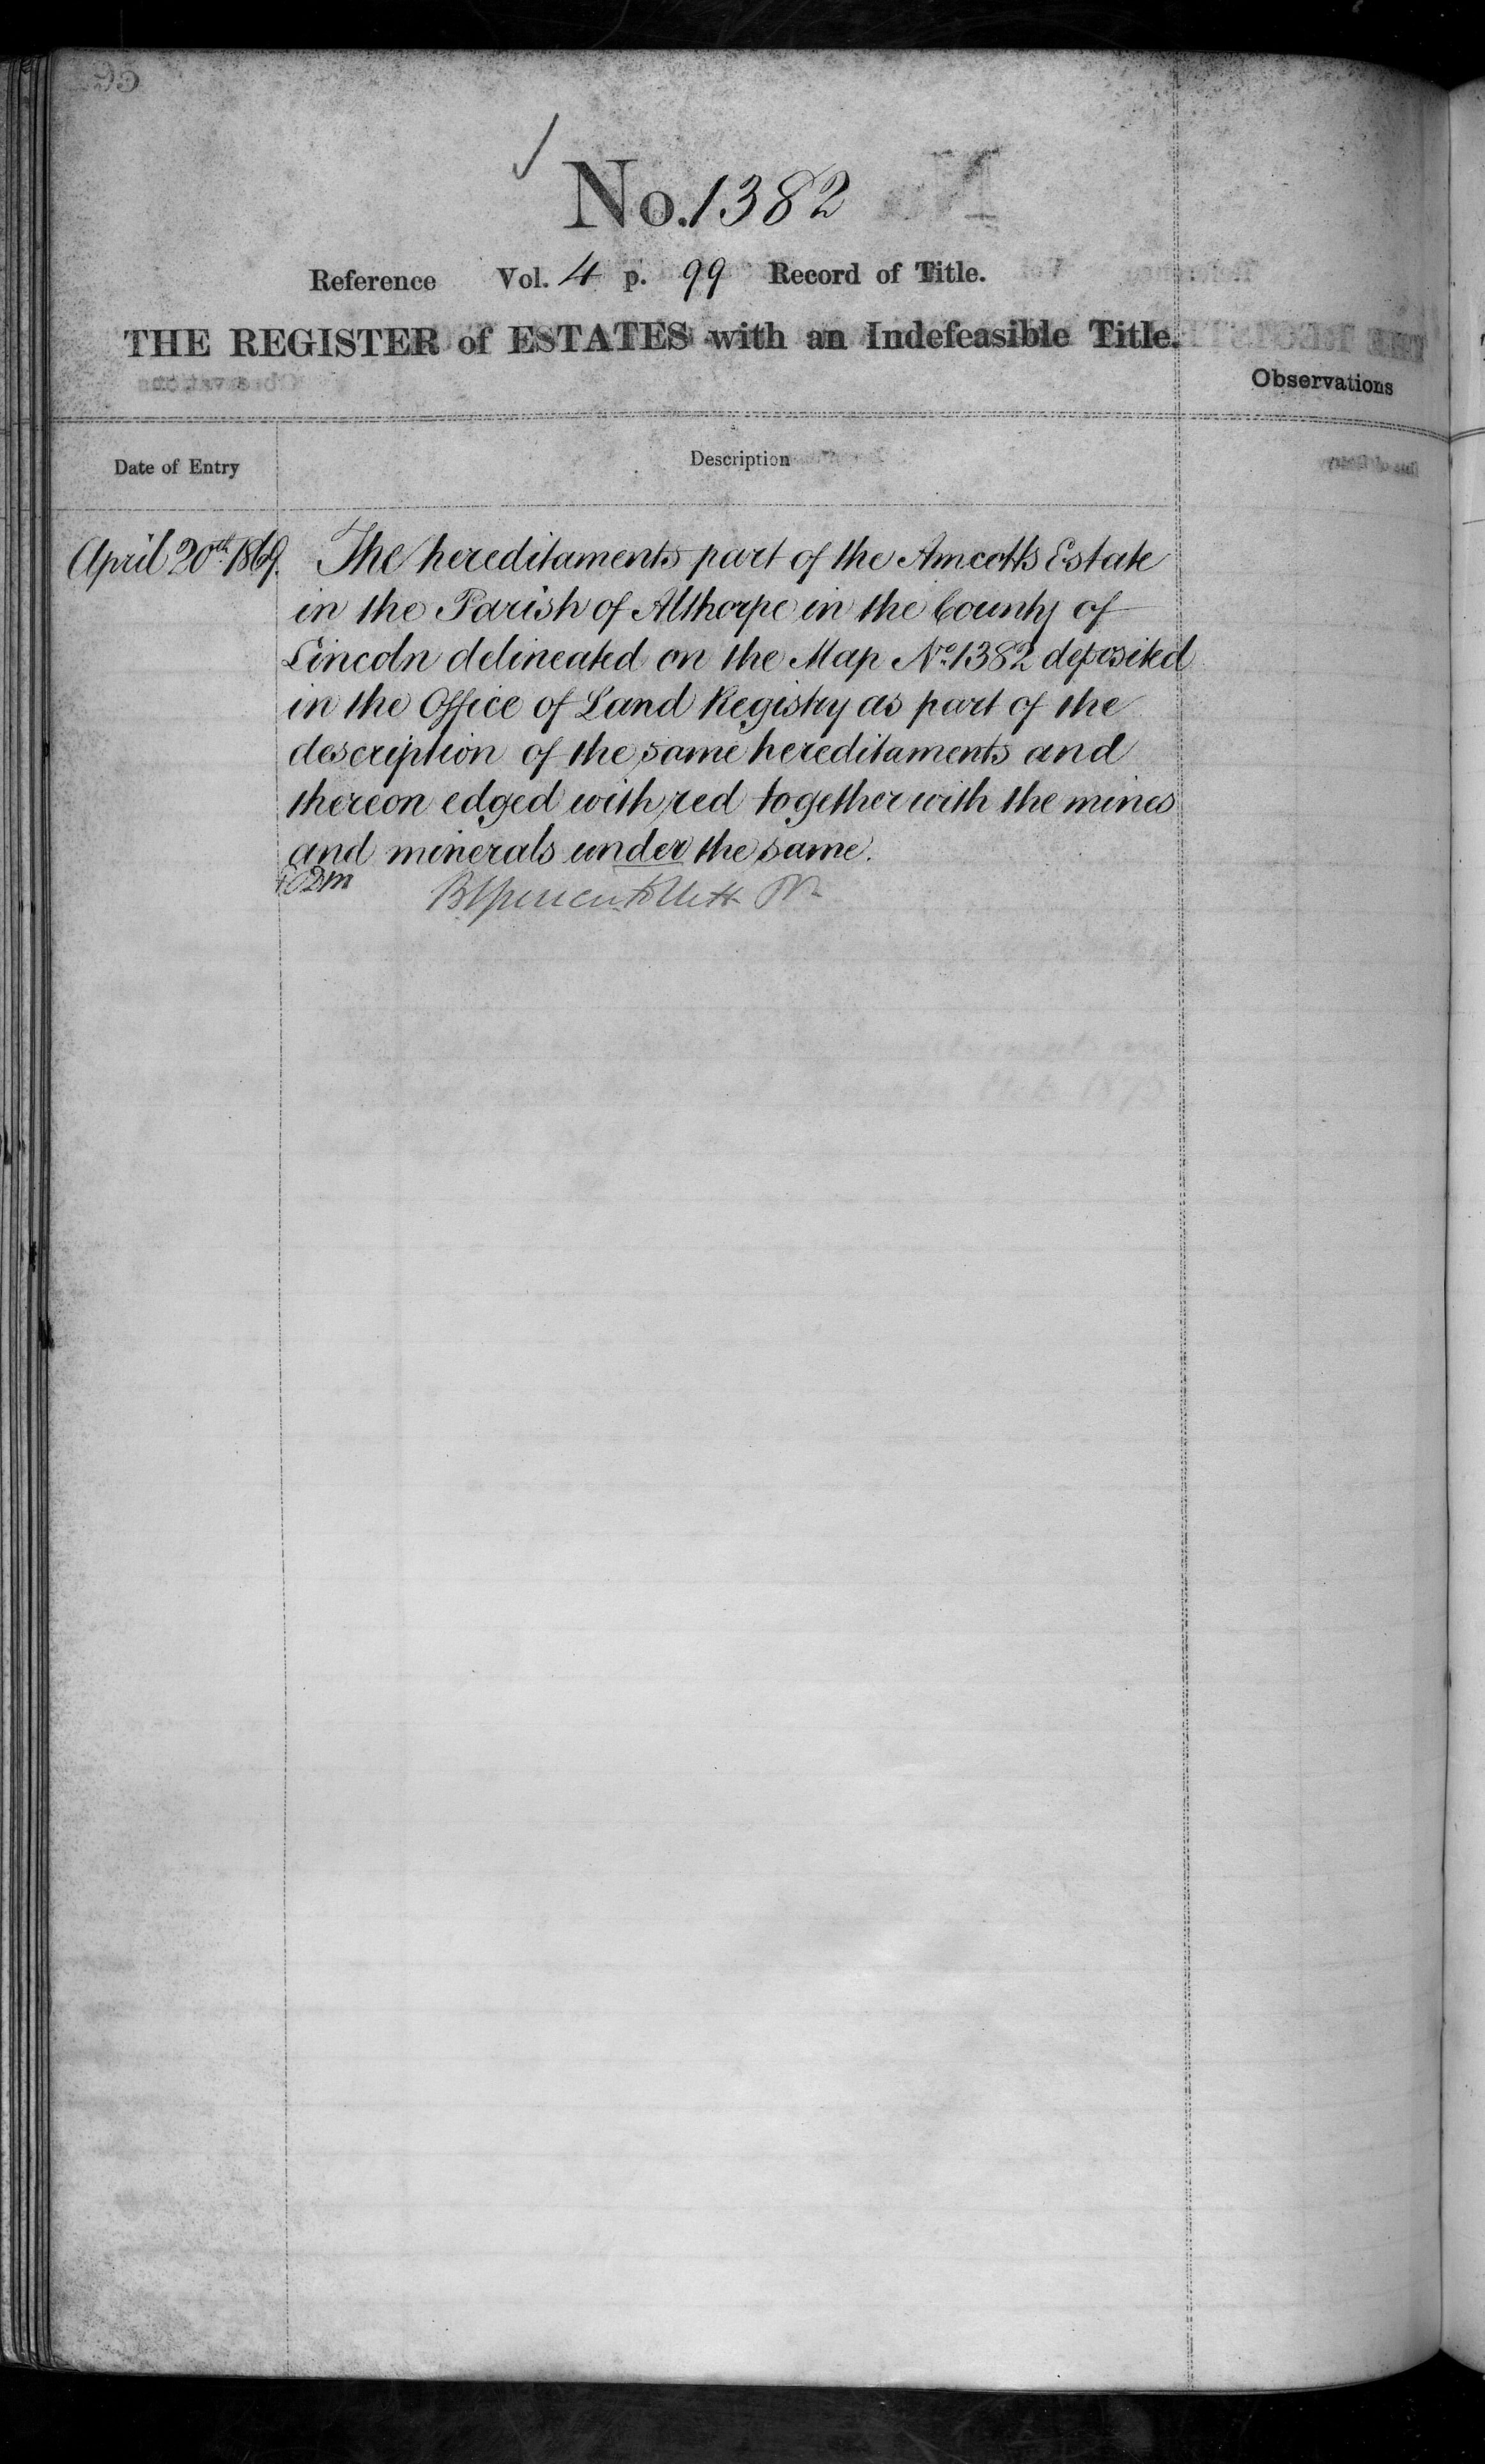 No. 1382
Reference Vol. 4 p. 99 Record of Title.
THE REGISTER of ESTATES with an Indefeasible Title.
Observations
Date of Entry
Description
April 20th 1869. The hereditaments part of the Amcotts Estate
in the Parish of Althorpe in the County of
Lincoln delineated on the Map No. 1382 deposited
in the Office of Land Registry as part of the
description of the same hereditaments and
thereon edged with red together with the mines
and minerals under the same.